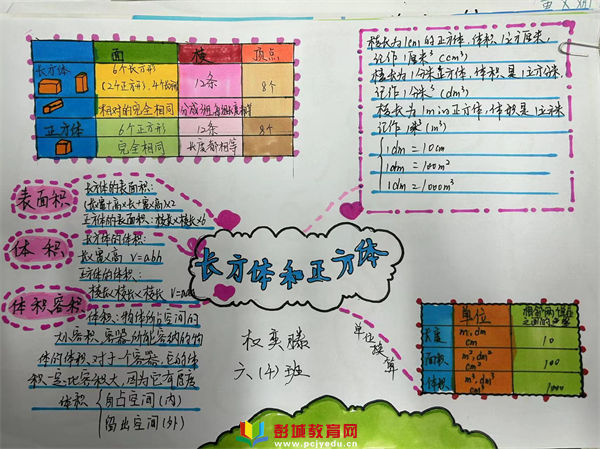 面 棱 顶点
长方体 6个长方形 12条 8个
(2个正方形,4个长方形)
相对的完全相同
正方体 6个正方形 12条 8个
完全相同 长度都相等
棱长为1cm的正方体,体积1立方厘米,
记作1厘米³(cm³)
棱长为1分米正方体,体积是1立方分米,
记作1分米³(dm³)
棱长为1m正方体,体积是1立方米
记作1米³(m³)
1dm=10cm
1dm=100m²
1dm=1000m³
表面积
长方体的表面积:
正方体的表面积:棱长×棱长×6
体积
长方体的体积:
长×宽×高 V=abh
正方体的体积:
棱长×棱长×棱长
长方体和正方体
体积容积
体积:物体所占空间的
大小容积:容器所能容纳的物
体的体积.对于个容器,它的体
积一定比容积大,因为它有厚度
体积 自占空间(内)
留出空间(外)
六(4)班
单位换算
单位
长度 m,dm cm 10
面积 m²,dm² cm² 100
体积 m³,dm³ cm³ 1000
彭城教育网
www.pcjyedu.cn